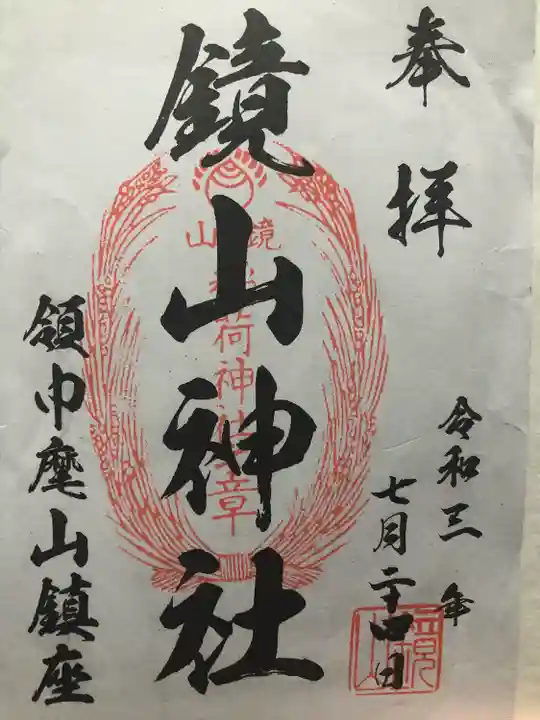 奉拝
令和三年
七月二十四日
鏡山神社
鏡山
稲荷神社章
領巾麾山鎮座